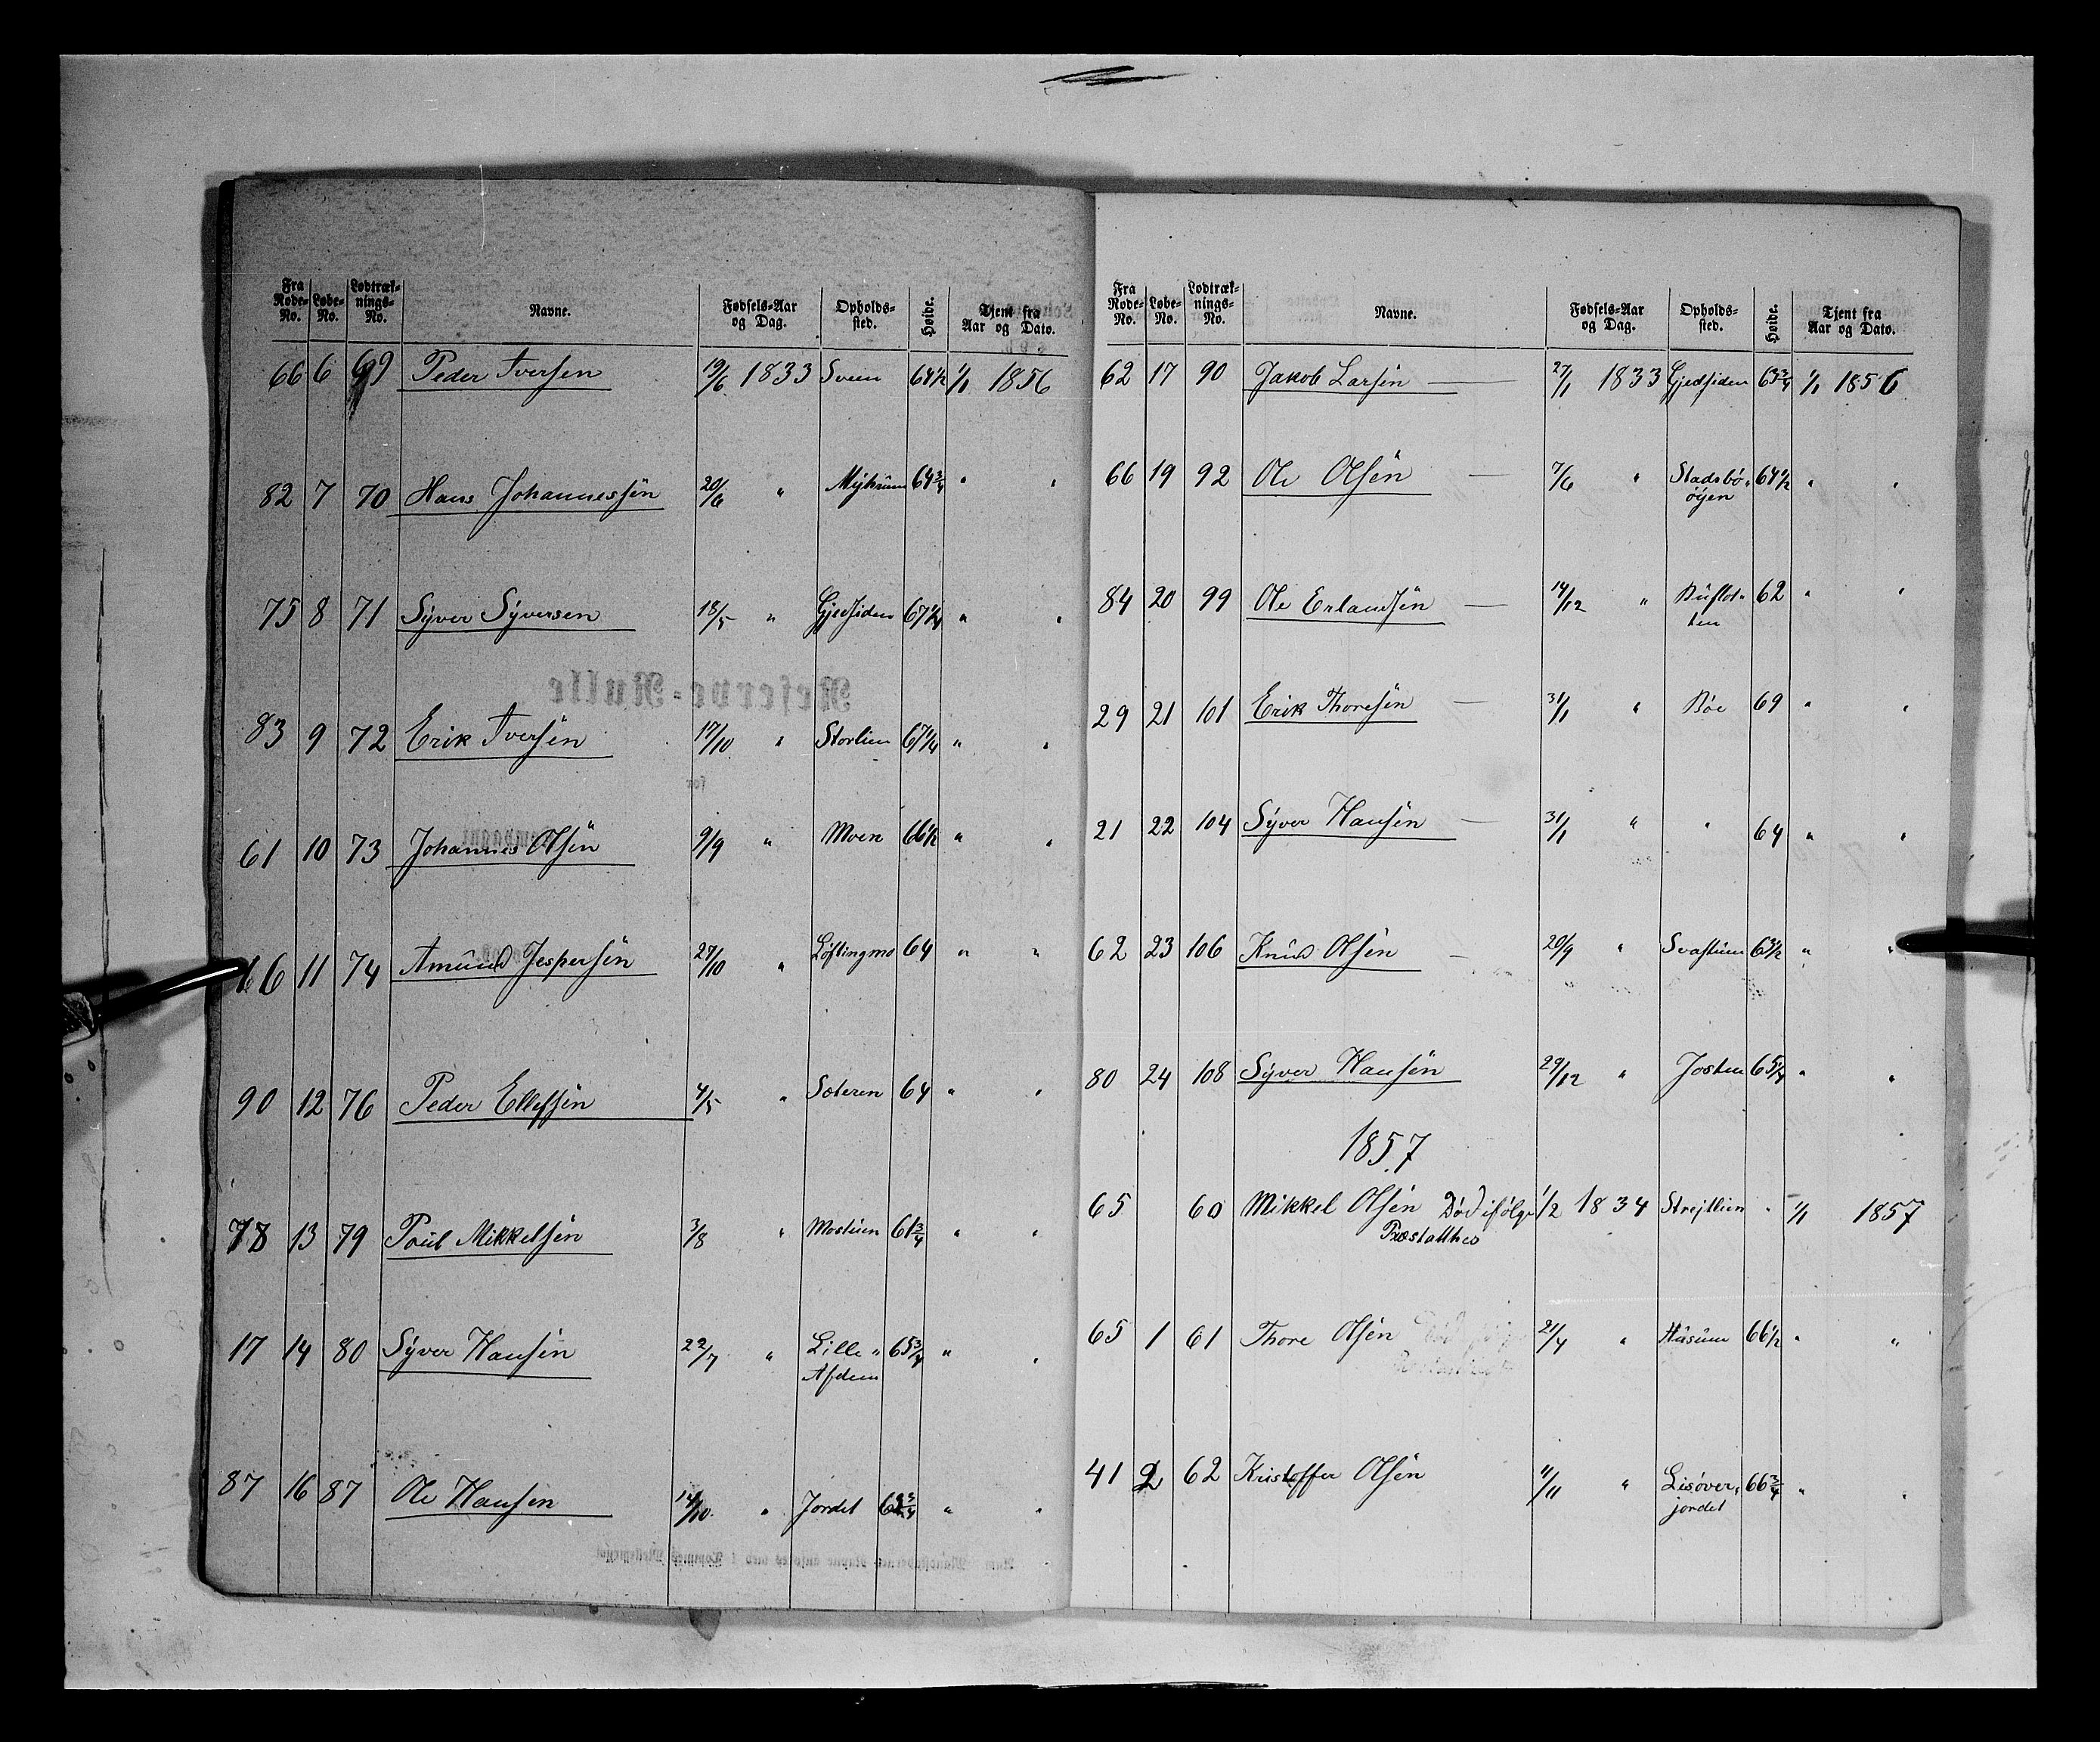 Fra Rode-No. Løbe-No. Lodtræk-nings-No. Navne. Fødsels-Aar og Dag. Opholds-sted. Høide. Tjent fra Aar og Dato.
66 6 69 Peder Iversen 19/6 1833 Sveen 64 1/2 1/1 1856
82 7 70 Hans Johannessen 20/6 " Myhrum 64 3/4 " "
75 8 71 Syver Syversen 18/5 " Gjedsiden 67 1/4 " "
83 9 72 Erik Iversen 17/10 " Storlien 67 1/4 " "
61 10 73 Johannes Olsen 9/9 " Moen 66 1/2 " "
66 11 74 Amund Jespersen 27/10 " Løftingmo 64 " "
90 12 76 Peder Ellefsen 4/5 " Sæteren 64 " "
78 13 79 Poul Mikkelsen 3/8 " Mostuen 61 3/4 " "
17 14 80 Syver Hansen 22/7 " Lille " 65 3/4 " "
Afdem
87 16 87 Ole Hansen 14/10 " Jordet 63 3/4 " "
Fra Rode-No. Løbe-No. Lodtræk-nings-No. Navne. Fødsels-Aar og Dag. Opholds-sted. Høide. Tjent fra Aar og Dato.
62 17 90 Jakob Larsen — 27/1 1833 Gjedsiden 63 3/4 1/1 1856
66 19 92 Ole Olsen — 7/6 " Stadsbø " 64 1/2 " "
øyen
84 20 99 Ole Erlandsen — 14/12 " Rusflot " 62 " "
ten
29 21 101 Erik Thoresen — 31/1 " Bøe 69 " "
21 22 104 Syver Hansen — 31/1 " " 64 " "
62 23 106 Knud Olsen — 20/9 " Svastuen 63 1/2 " "
80 24 108 Syver Hansen 29/12 " Josten 65 1/4 " "
1857
65 60 Mikkel Olsen Død ifølge 1/2 1834 Strejtlien " 1/1 1857
Præstatthes
65 1 61 Thore Olsen 21/4 " Husum 66 1/2 " "
41 2 62 Kristoffer Olsen 11/11 " Lisøver, 66 3/4 " "
jordet